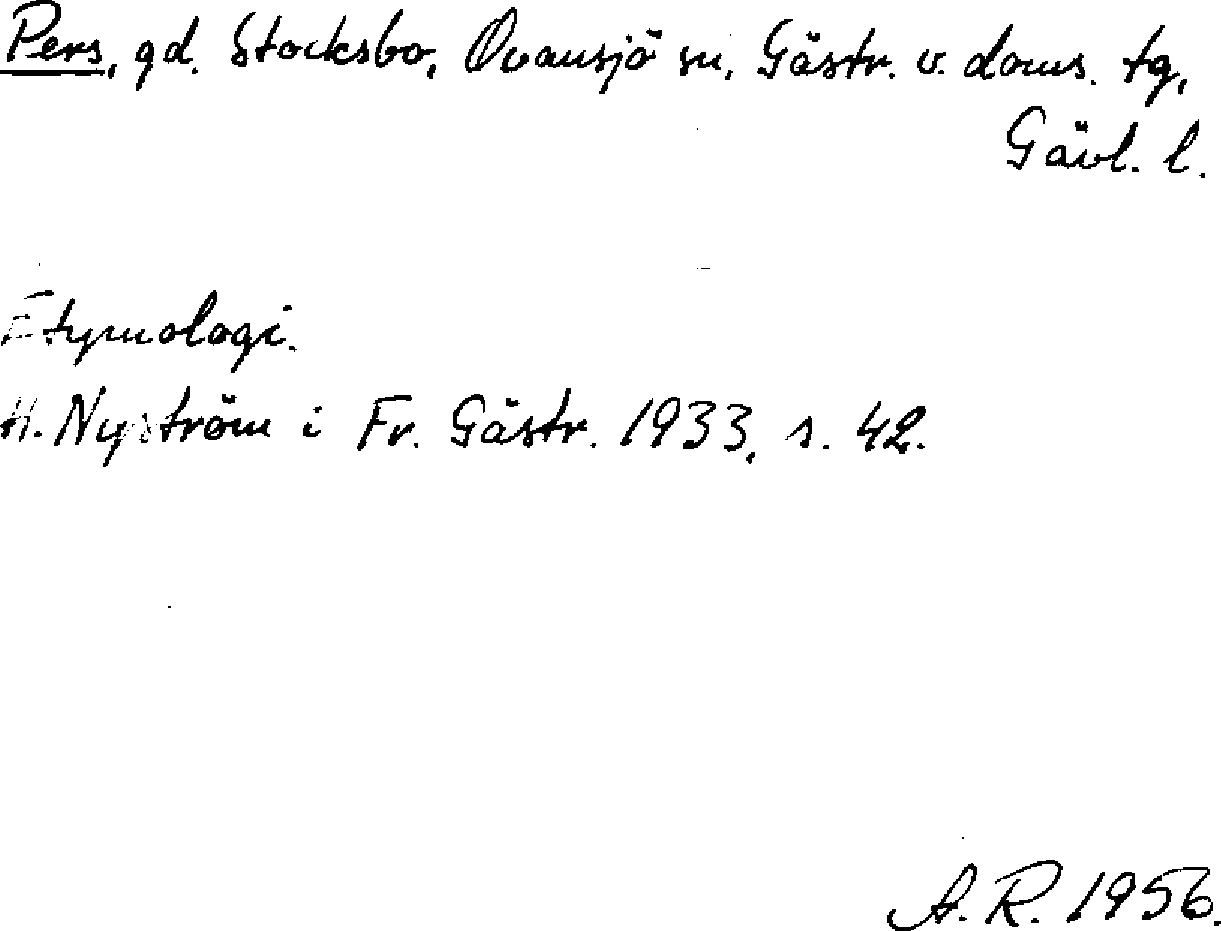 Pers, gd. Stocksbo, Ovansjö sn, Gästr. v. doms. tg,
Gävl. l.
Etymologi.
H. Nyström i Fr. Gästr. 1933, s. 42.
A.R. 1956.